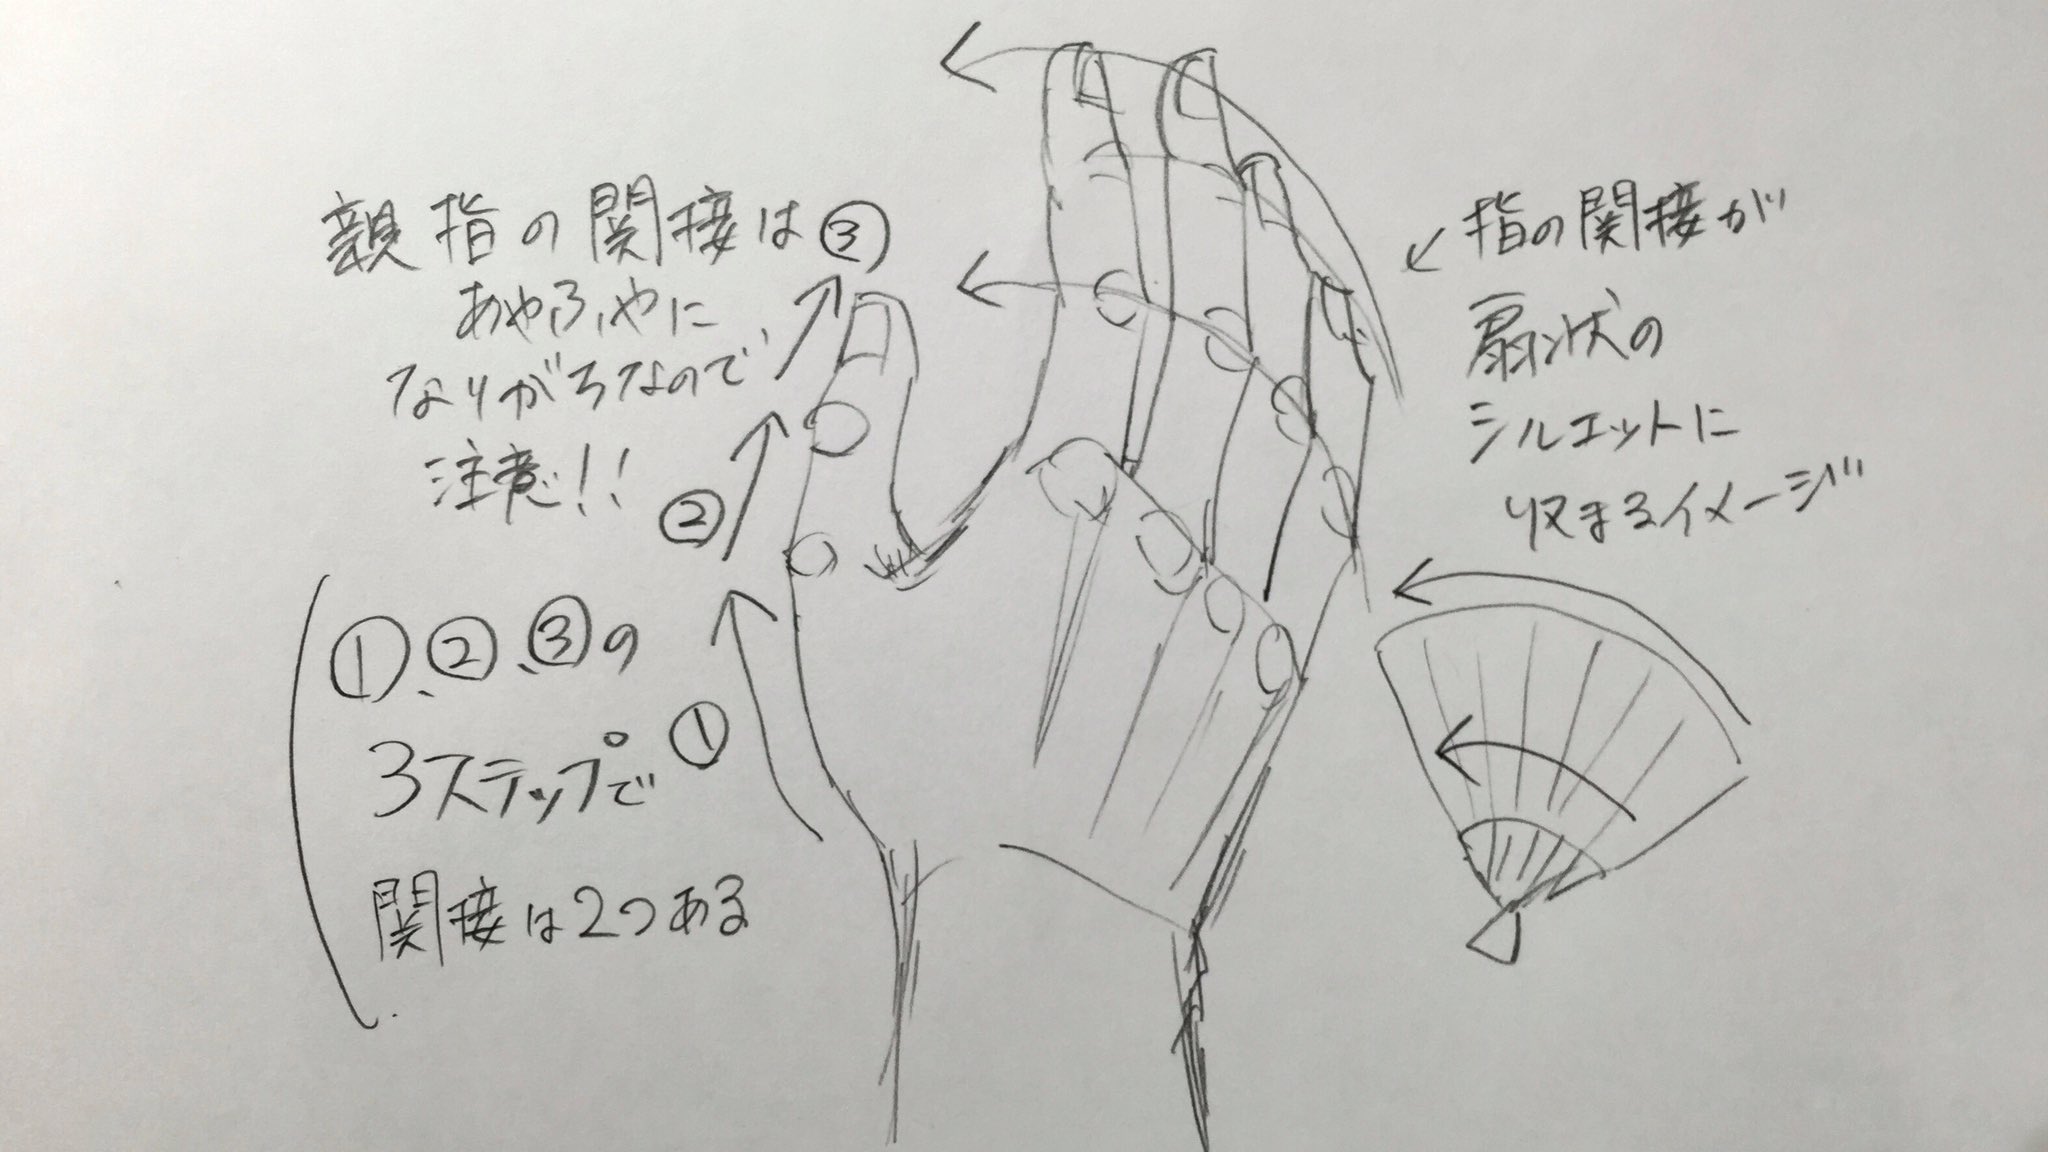 親指の関接は
あやふやに
なりがちなので、
注意!!
①、②、③の
3ステップで
関接は2つある
①
②
③
指の関接が
扇状の
シルエットに
収まるイメージ